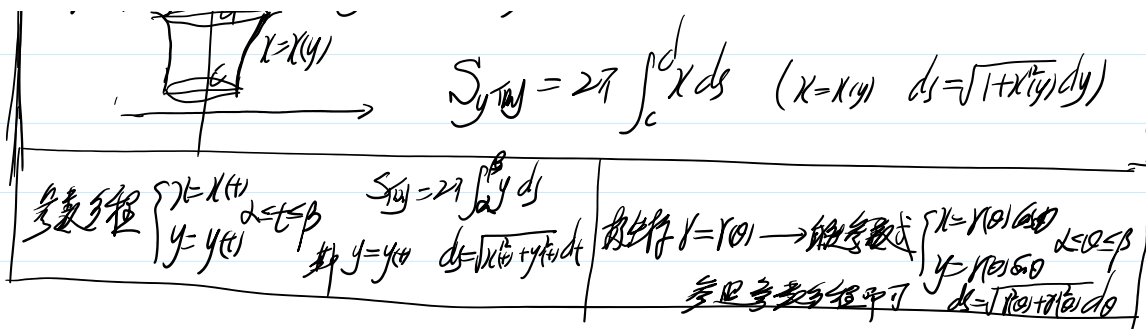 x=x(y)
c
S_{y侧} = 2π ∫_c^d x ds （x=x(y) ds=√(1+x'²(y)) dy）
参数方程 { x=x(t) y=y(t) α≤t≤β
S_侧 = 2π ∫_α^β y ds
其中 y=y(t) ds=√(x'²(t)+y'²(t)) dt
极坐标 r=r(θ) → 参数式 { x=r(θ)cosθ y=r(θ)sinθ α≤θ≤β
参照参数方程即可 ds=√(r²(θ)+r'²(θ)) dθ